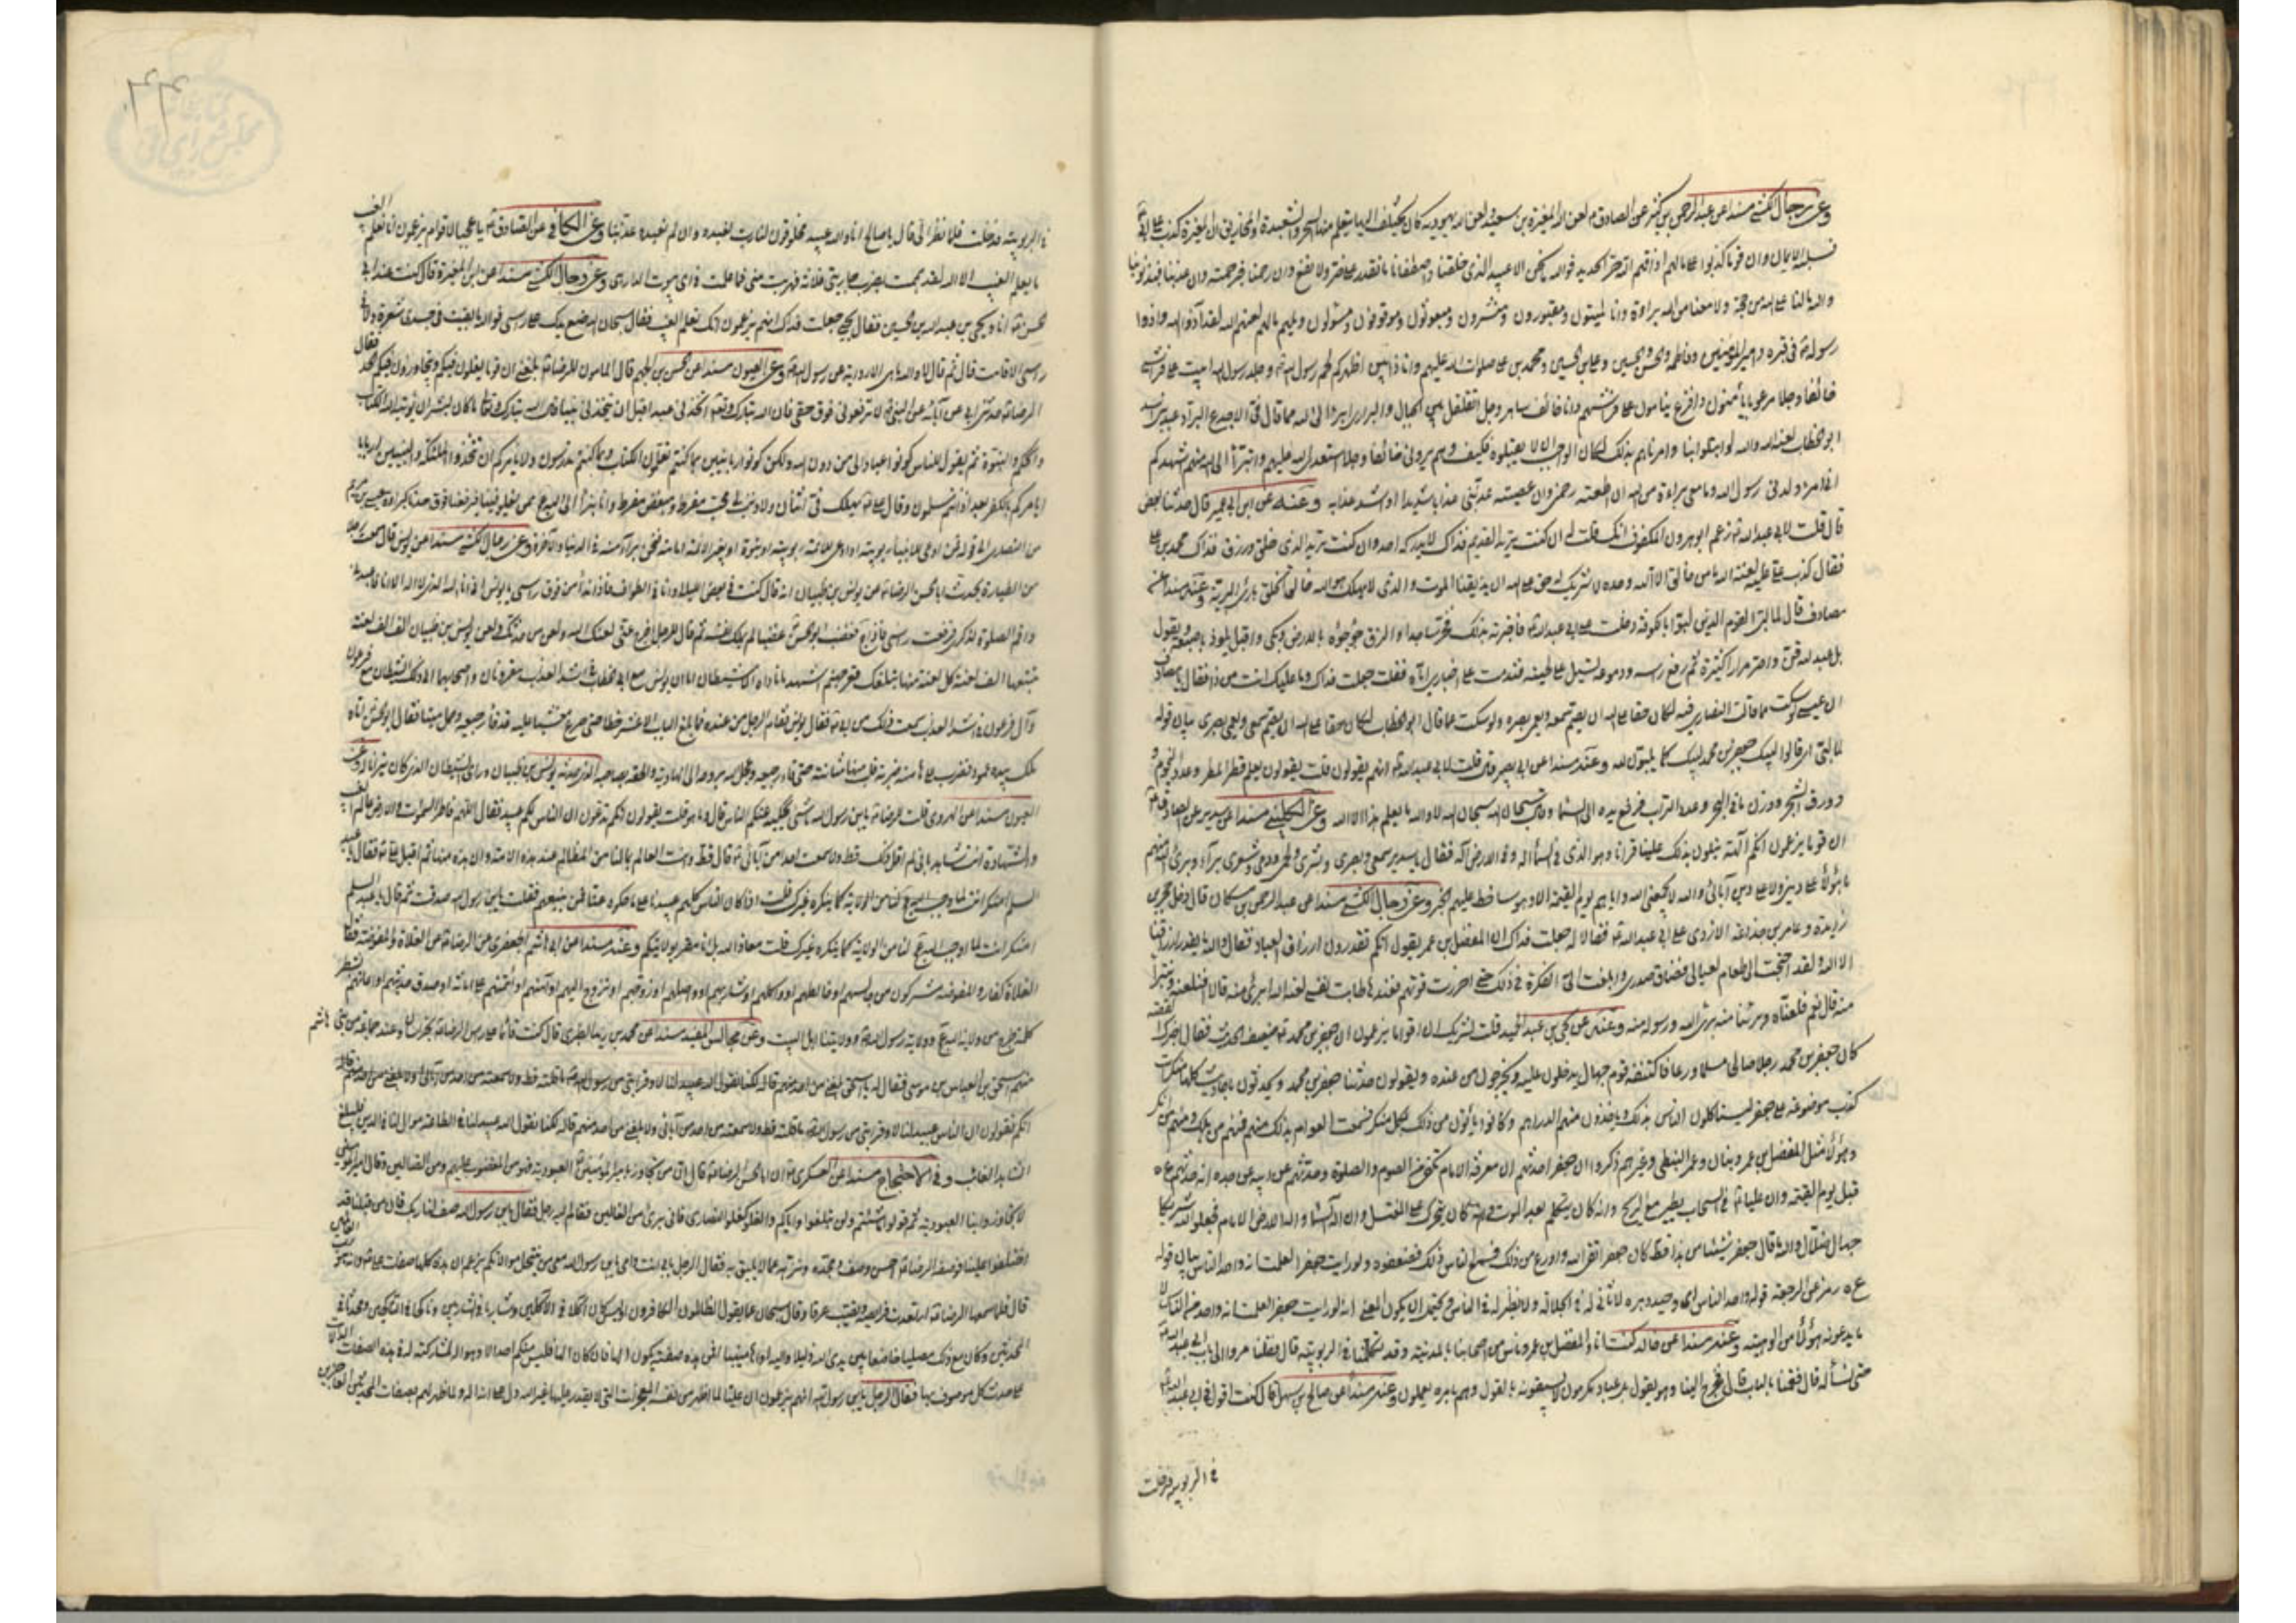 وعن رجال الكشي مسندا عن عبد الرحمن بن كثير عن الصادق م لعن الله المغيرة بن سعيد ولعن الله يهودية كان يختلف اليها يتعلم منها السحر والشعبدة والمخاريق ان المغيرة كذب على ابي
فسلبه الله الايمان وان قوما كذبوا علي ما لهم اذاقهم الله حر الحديد فوالله ما نحن الا عبيد الذي خلقنا واصطفانا ما نقدر على ضر ولا نفع وان رحمنا فبرحمته وان عذبنا فبذنوبنا
والله ما لنا على الله من حجة ولا معنا من الله براءة وانا لميتون ومقبورون ومنشرون ومبعوثون وموقوفون ومسئولون ويلهم ما لهم لعنهم الله لقد آذوا الله واذوا
رسوله في قبره وامير المؤمنين وفاطمة والحسن والحسين وعلي بن الحسين ومحمد بن علي صلوات الله عليهم وانا ذا بين اظهركم لحم رسول الله وجلد رسول الله ابيت على فراشي
خائفا وجلا مرعوبا يأمنون وافزع ينامون على فرشهم وانا خائف ساهر وجل اتقلقل بين الجبال والبراري ابرء الى الله مما قال في الاجدع البراد عبد بني اسد
ابو الخطاب لعنه الله والله لو ابتلوا بنا وامرناهم بذلك لكان الواجب ان لا يقبلوه فكيف وهم يروني خائفا وجلا استعدي الله عليهم واتبرأ الى الله منهم اشهدكم
اني امرؤ ولدني رسول الله وما معي براءة من الله ان اطعته رحمني وان عصيته عذبني عذابا شديدا او اشد عذابه وعنه عن ابن ابي عمير قال حدثنا بعض
قال قلت لابي عبد الله زعم ابو هرون المكفوف انك قلت له ان كنت تريد القديم فذاك لا يدركه احد وان كنت تريد الذي خلق ورزق فذاك محمد بن علي
فقال كذب علي عليه لعنة الله ما من خالق الا الله وحده لا شريك له حق على الله ان يذيقنا الموت والذي لا يهلك هو الله خالق الخلق بارئ البرية وعنه مسندا عن
مصادف قال لما لبى القوم الذين لبوا بالكوفة دخلت على ابي عبد الله فاخبرته بذلك فخر ساجدا والزق جؤجؤه بالارض وبكى واقبل يلوذ باصبعه يقول
بل عبد لله قن داخر مرارا كثيرة ثم رفع رأسه ودموعه تسيل على لحيته فندمت على اخباري اياه فقلت جعلت فداك وما عليك انت من ذا فقال يا مصادف
ان عيسى لو سكت عما قالت النصارى فيه لكان حقا على الله ان يصم سمعه ويعمي بصره ولو سكت عما قال ابو الخطاب لكان حقا على الله ان يصم سمعي ويعمي بصري بيان قوله
لما لبى اي قالوا لبيك جعفر بن محمد لبيك كما يلبون لله وعنه مسندا عن ابي بصير قال قلت لابي عبد الله انهم يقولون قال وما يقولون قلت يقولون يعلم قطر المطر وعدد النجوم
وورق الشجر ووزن ما في البحر وعدد التراب فرفع يده الى السماء وقال سبحان الله سبحان الله لا والله ما يعلم هذا الا الله وعن الكليني مسندا عن سدير عن الصادق
ان قوما يزعمون انكم آلهة يتلون بذلك علينا قرانا وهو الذي في السماء اله وفي الارض اله فقال يا سدير سمعي وبصري وبشري ولحمي ودمي وشعري براء وبرئ الله منهم
ما هؤلاء على ديني ولا على دين آبائي والله لا يجمعني الله واياهم يوم القيمة الا وهو ساخط عليهم الخبر وعن رجال الكشي مسندا عن عبد الرحمن بن مسكان قال دخل حجر بن
زائدة وعامر بن جذاعة الازدي على ابي عبد الله فقالا له جعلت فداك ان المفضل بن عمر يقول انكم تقدرون ارزاق العباد فقال والله ما يقدر ارزاقنا
الا الله ولقد احتجت الى طعام لعيالي فضاق صدري وابلغت الي الفكرة في ذلك حتى احرزت قوتهم فعندها طابت نفسي لعنه الله وبرئ منه قالا افنلعنه ونتبرأ
منه قال نعم فلعناه وبرئنا منه برئ الله ورسوله منه وعنه عن يحيى بن عبد الحميد قلت لشريك ان اقواما يزعمون ان جعفر بن محمد ضعيف الحديث فقال اخبرك القصة
كان جعفر بن محمد رجلا صالحا مسلما ورعا فاكتنفه قوم جهال يدخلون عليه ويخرجون من عنده ويقولون حدثنا جعفر بن محمد ويحدثون باحاديث كلها منكرات
كذب موضوعة على جعفر ليستاكلون الناس بذلك وياخذون منهم الدراهم وكانوا يأتون من ذلك بكل منكر فسمعت العوام بذلك منهم فمنهم من هلك ومنهم من انكر
وهؤلاء مثل المفضل بن عمر وبنان وعمر النبطي وغيرهم ذكروا ان جعفرا حدثهم ان معرفة الامام تكفي من الصوم والصلوة وحدثهم عن ابيه عن جده انه حدثهم ع ه
قبل يوم القيمة وان عليا في السحاب يطير مع الريح وانه كان يتكلم بعد الموت وانه كان يتحرك على المغتسل وان اله السماء واله الارض الامام فجعلوا لله شريكا
جهال ضلال والله ما قال جعفر شيئا من هذا قط كان جعفر اتقى لله واورع من ذلك فسمع الناس ذلك فضعفوه ولو رايت جعفرا لعلمت انه واحد الناس بيان قوله
ع ه رمز عن الرجعة قوله واحد الناس اي وحيد دهره لا ثاني له في الجلالة ولا نظير له في الناس ويحتمل ان يكون المعنى انه لو رايت جعفر لعلمت انه واحد من الناس لا
ما يدعونه هؤلاء من الوهيته وعنه مسندا عن خالد كنت انا والمفضل بن عمر وناس من اصحابنا بالمدينة وقد تكلمنا في الربوبية قال فقلنا مروا الى باب ابي عبد الله
حتى نسأله قال فقمنا بالباب قال فخرج الينا وهو يقول بل عباد مكرمون لا يسبقونه بالقول وهم بامره يعملون وعنه مسندا عن صالح بن سهل قال كنت اقول في ابي عبد الله
في الربوبية فدخلت
في الربوبية فدخلت فلما نظر الي قال يا صالح انا والله عبيد مخلوقون لنا رب نعبده وان لم نعبده عذبنا وعن الكافي عن الصادق يا عجبا لاقوام يزعمون انا نعلم الغيب
ما يعلم الغيب الا الله لقد هممت بضرب جاريتي فلانة فهربت مني فما علمت في اي بيوت الدار هي وعن رجال الكشي مسندا عن ابن المغيرة قال كنت عند ابي
الحسن انا ويحيى بن عبد الله بن الحسين فقال يحيى جعلت فداك انهم يزعمون انك تعلم الغيب فقال سبحان الله ضع يدك على رأسي فوالله ما بقيت في جسدي شعرة ولا في
رأسي الا قامت قال ثم قال لا والله ما هي الا رواية عن رسول الله وعن العيون مسندا عن الحسن بن الجهم قال قال المامون للرضا بلغني ان قوما يغلون فيكم ويتجاوزون فيكم الحد فقال
الرضا حدثني ابي عن آبائه عن النبي لا ترفعوني فوق حقي فان الله تبارك وتعالى اتخذني عبدا قبل ان يتخذني نبيا قال الله تبارك وتعالى ما كان لبشر ان يؤتيه الله الكتاب
والحكم والنبوة ثم يقول للناس كونوا عبادا لي من دون الله ولكن كونوا ربانيين بما كنتم تعلمون الكتاب وبما كنتم تدرسون ولا يأمركم ان تتخذوا الملئكة والنبيين اربابا
ايامركم بالكفر بعد اذ انتم مسلمون وقال علي يهلك في اثنان ولا ذنب لي محب مفرط ومبغض مفرط وانا نبرأ الى الله ممن يغلو فينا فيرفعنا فوق حدنا كبراءة عيسى بن مريم
من النصارى الى قوله فمن ادعى للانبياء ربوبية او ادعى للائمة ربوبية او نبوة او لغير الائمة امامة فنحن براء منه في الدنيا والآخرة وعن رجال الكشي مسندا عن يونس قال سمعت رجلا
من الطيارة يحدث ابا الحسن الرضا عن يونس بن ظبيان انه قال كنت في بعض الليالي وانا في الطواف فاذا نداء من فوق رأسي يا يونس اني انا الله لا اله الا انا فاعبدني
واقم الصلوة لذكري فرفعت رأسي فاذا ج فغضب ابو الحسن غضبا لم يملك نفسه ثم قال للرجل اخرج عني لعنك الله ولعن من حدثك ولعن يونس بن ظبيان الف الف لعنة
تتبعها الف لعنة كل لعنة منها تبلغك قعر جهنم اشهد ما ناداه الا شيطان اما ان يونس مع ابي الخطاب في اشد العذاب مقرونان واصحابهما الى ذلك الشيطان مع فرعون
وآل فرعون في اشد العذاب سمعت ذلك من ابي فقال يونس فقام الرجل من عنده فما بلغ الباب الا عشر خطا حتى صرع مغشيا عليه قد قاء رجيعه وحمل ميتا فقال ابو الحسن اتاه
ملك بيده عمود فضرب على هامته ضربة قلب منها مثانته حتى قاء رجيعه وعجل الله بروحه الى الهاوية والحقه بصاحبه الذي حدثه يونس بن ظبيان وراى الشيطان الذي كان يتراءى له وعن
العيون مسندا عن الهروي قلت للرضا يا بن رسول الله ما شئ يحكيه عنكم الناس قال وما هو قلت يقولون انكم تدعون ان الناس لكم عبيد فقال اللهم فاطر السموات والارض عالم الغيب
والشهادة انت شاهد باني لم اقل ذلك قط ولا سمعت احدا من آبائي قال قط وانت العالم بما لنا من المظالم عند هذه الامة وان هذه منها ثم اقبل علي فقال يا عبد
السلم اذا كان الناس كلهم عبيدنا على ما حكوه عنا فممن نبيعهم فقلت يا بن رسول الله صدقت ثم قال يا عبد السلم
امنكر انت لما اوجب الله تعالى لنا من الولاية كما ينكره غيرك قلت معاذ الله بل انا مقر بولايتكم وعنه مسندا عن ابي هاشم الجعفري عن الرضا عن الغلاة والمفوضة فقال
الغلاة كفار والمفوضة مشركون من جالسهم او خالطهم او واكلهم او شاربهم او واصلهم او زوجهم او تزوج اليهم او آمنهم او ائتمنهم على امانة او صدق حديثهم او اعانهم بشطر
كلمة خرج من ولاية الله تعالى وولاية رسول الله وولايتنا اهل البيت وعن مجالس المفيد مسندا عن محمد بن زيد الطبري قال كنت قائما على رأس الرضا بخراسان وعنده جماعة من بني هاشم
منهم اسحق بن العباس بن موسى فقال له يا اسحق بلغني
انكم تقولون ان الناس عبيد لنا لا وقرابتي من رسول الله ما قلته قط ولا سمعته من احد من آبائي ولا بلغني عن احد منهم قاله لكنا نقول الناس عبيد لنا في الطاعة موال لنا في الدين فليبلغ
الشاهد الغائب وفي الاحتجاج مسندا عن العسكري ان ابا الحسن الرضا قال ان من تجاوز بامير المؤمنين العبودية فهو من المغضوب عليهم ومن الضالين وقال امير المؤمنين
لا تتجاوزوا بنا العبودية ثم قولوا ما شئتم ولن تبلغوا واياكم والغلو كغلو النصارى فاني برئ من الغالين فقام اليه رجل فقال يا بن رسول الله صف لنا ربك فان من قبلنا قد
اختلفوا علينا فوصفه الرضا احسن وصف ومجده ونزهه عما لا يليق به فقال الرجل بابي انت وامي يا بن رسول الله معي من ينتحل موالاتكم يزعم ان هذه كلها صفات علي وانه هو الله رب العالمين
قال فلما سمعها الرضا ارتعدت فرائصه وتصبب عرقا وقال سبحان الله عما يقول الظالمون الكافرون اوليس كان آكلا في الآكلين وشاربا في الشاربين وناكحا في الناكحين ومحدثا في
المحدثين وكان مع ذلك مصليا خاضعا بين يدي الله ذليلا واليه اواها منيبا افمن هذه صفته يكون الها فان كان الها فليس منكم احد الا وهو اله لمشاركته له في هذه الصفات الدالات
على حدث كل موصوف بها فقال الرجل يا بن رسول الله انهم يزعمون ان عليا لما اظهر من نفسه المعجزات التي لا يقدر عليها غير الله دل على انه اله ولما ظهر لهم بصفات المحدثين العاجزين